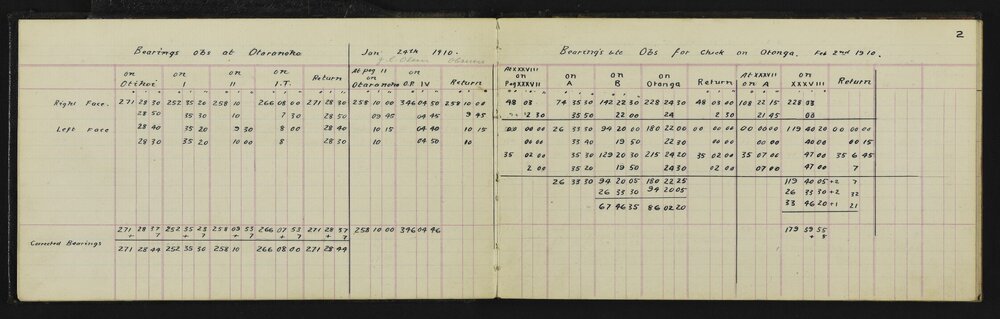 2
Bearings obs at Otaranoho Jan 24th 1910.
Observer
on Otihoi on I on II on I.T. Return At peg II on Otaranoho on O.P. IV Return
Right Face. 271 28 30 252 35 20 258 10 266 08 00 271 28 30 258 10 00 346 04 50 258 10 00
28 50 35 30 10 7 30 28 50 09 45 04 45 9 45
Left Face 28 40 35 20 9 30 8 00 28 40 10 15 04 40 10 15
28 30 35 20 10 00 8 28 30 10 04 50 10
271 28 37 252 35 23 258 09 53 266 07 53 271 28 37 258 10 00 346 04 46
+ 7 + 7 + 7 + 7 + 7
Corrected Bearings 271 28 44 252 35 30 258 10 266 08 00 271 28 44
Bearings &tc Obs for Check on Otonga. Feb 2nd 1910.
At XXXVIII on Peg XXXVII on A on B on Otonga Return At XXXVII on A on XXXVIII Return
48 03 74 35 30 142 22 30 228 24 30 48 03 00 108 22 15 228 03
2 30 35 50 22 00 24 2 30 21 45 03
00 00 00 26 33 30 94 20 00 180 22 00 00 00 00 00 00 00 119 40 20 00 00 00
00 00 33 40 19 50 22 30 00 00 00 00 40 00 00 15
35 02 00 35 30 129 20 30 215 24 20 35 02 00 35 07 00 47 00 35 6 45
2 00 35 20 19 50 24 30 02 00 07 00 47 00 7
26 33 30 94 20 05 180 22 25 119 40 05 +2 7
26 33 30 94 20 05 26 33 30 +2 32
67 46 35 86 02 20 33 46 20 +1 21
179 59 55
+ 5